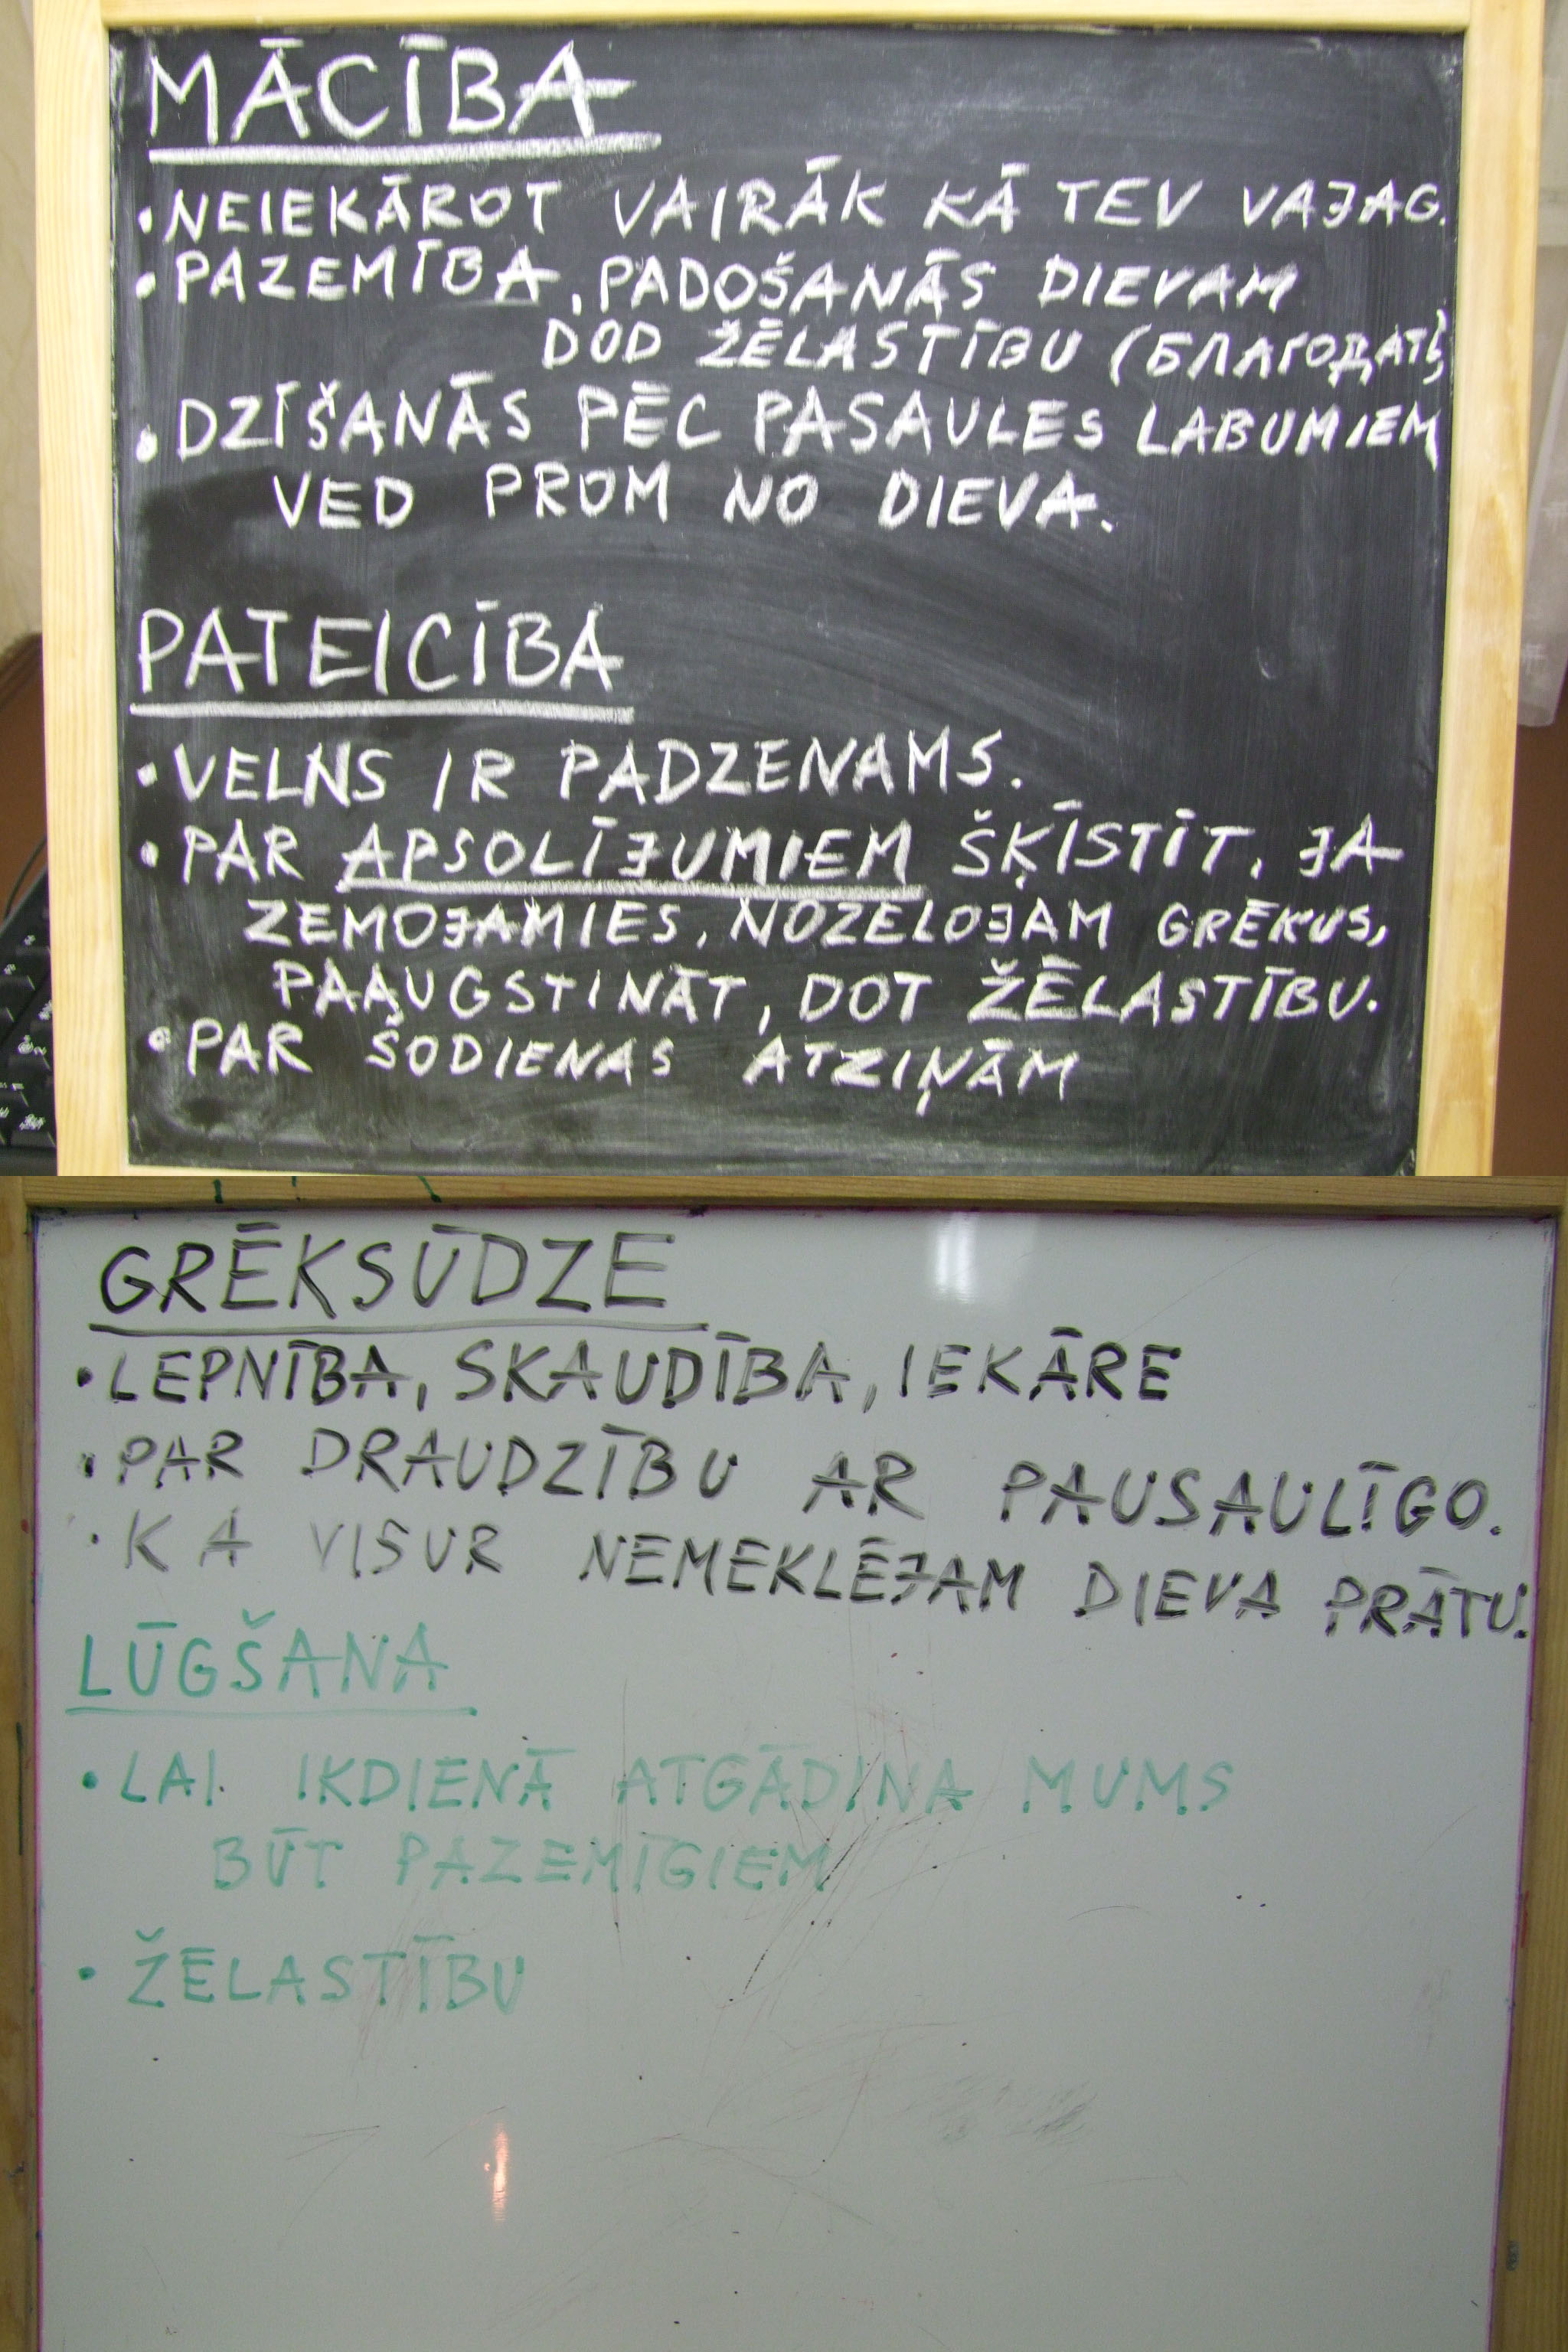 MĀCĪBA
• NEIEKĀROT VAIRĀK KĀ TEV VAJAG.
• PAZEMĪBA, PADOŠANĀS DIEVAM
DOD ŽĒLASTĪBU (БЛАГОДАТЬ)
• DZĪŠANĀS PĒC PASAULES LABUMIEM
VED PROM NO DIEVA.
PATEICĪBA
• VELNS IR PADZENAMS.
• PAR APSOLĪJUMIEM ŠĶĪSTĪT, JA
ZEMOJAMIES, NOZELOJAM GRĒKUS,
PAAUGSTINĀT, DOT ŽĒLASTĪBU.
• PAR ŠODIENAS ATZIŅĀM
GRĒKSŪDZE
• LEPNĪBA, SKAUDĪBA, IEKĀRE
• PAR DRAUDZĪBU AR PAUSAULĪGO.
• KA VISUR NEMEKLĒJAM DIEVA PRĀTU.
LŪGŠANA
• LAI IKDIENĀ ATGĀDINA MUMS
BŪT PAZEMĪGIEM
• ŽĒLASTĪBU